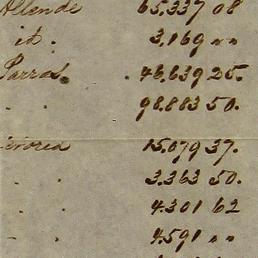 Allende 65.337 08
id. 3,169 " "
Parras. 46,639 25.
" 98.883 50.
15.079 37.
" " 3.363 50.
" " 4.301 62
" " 4.591 " "